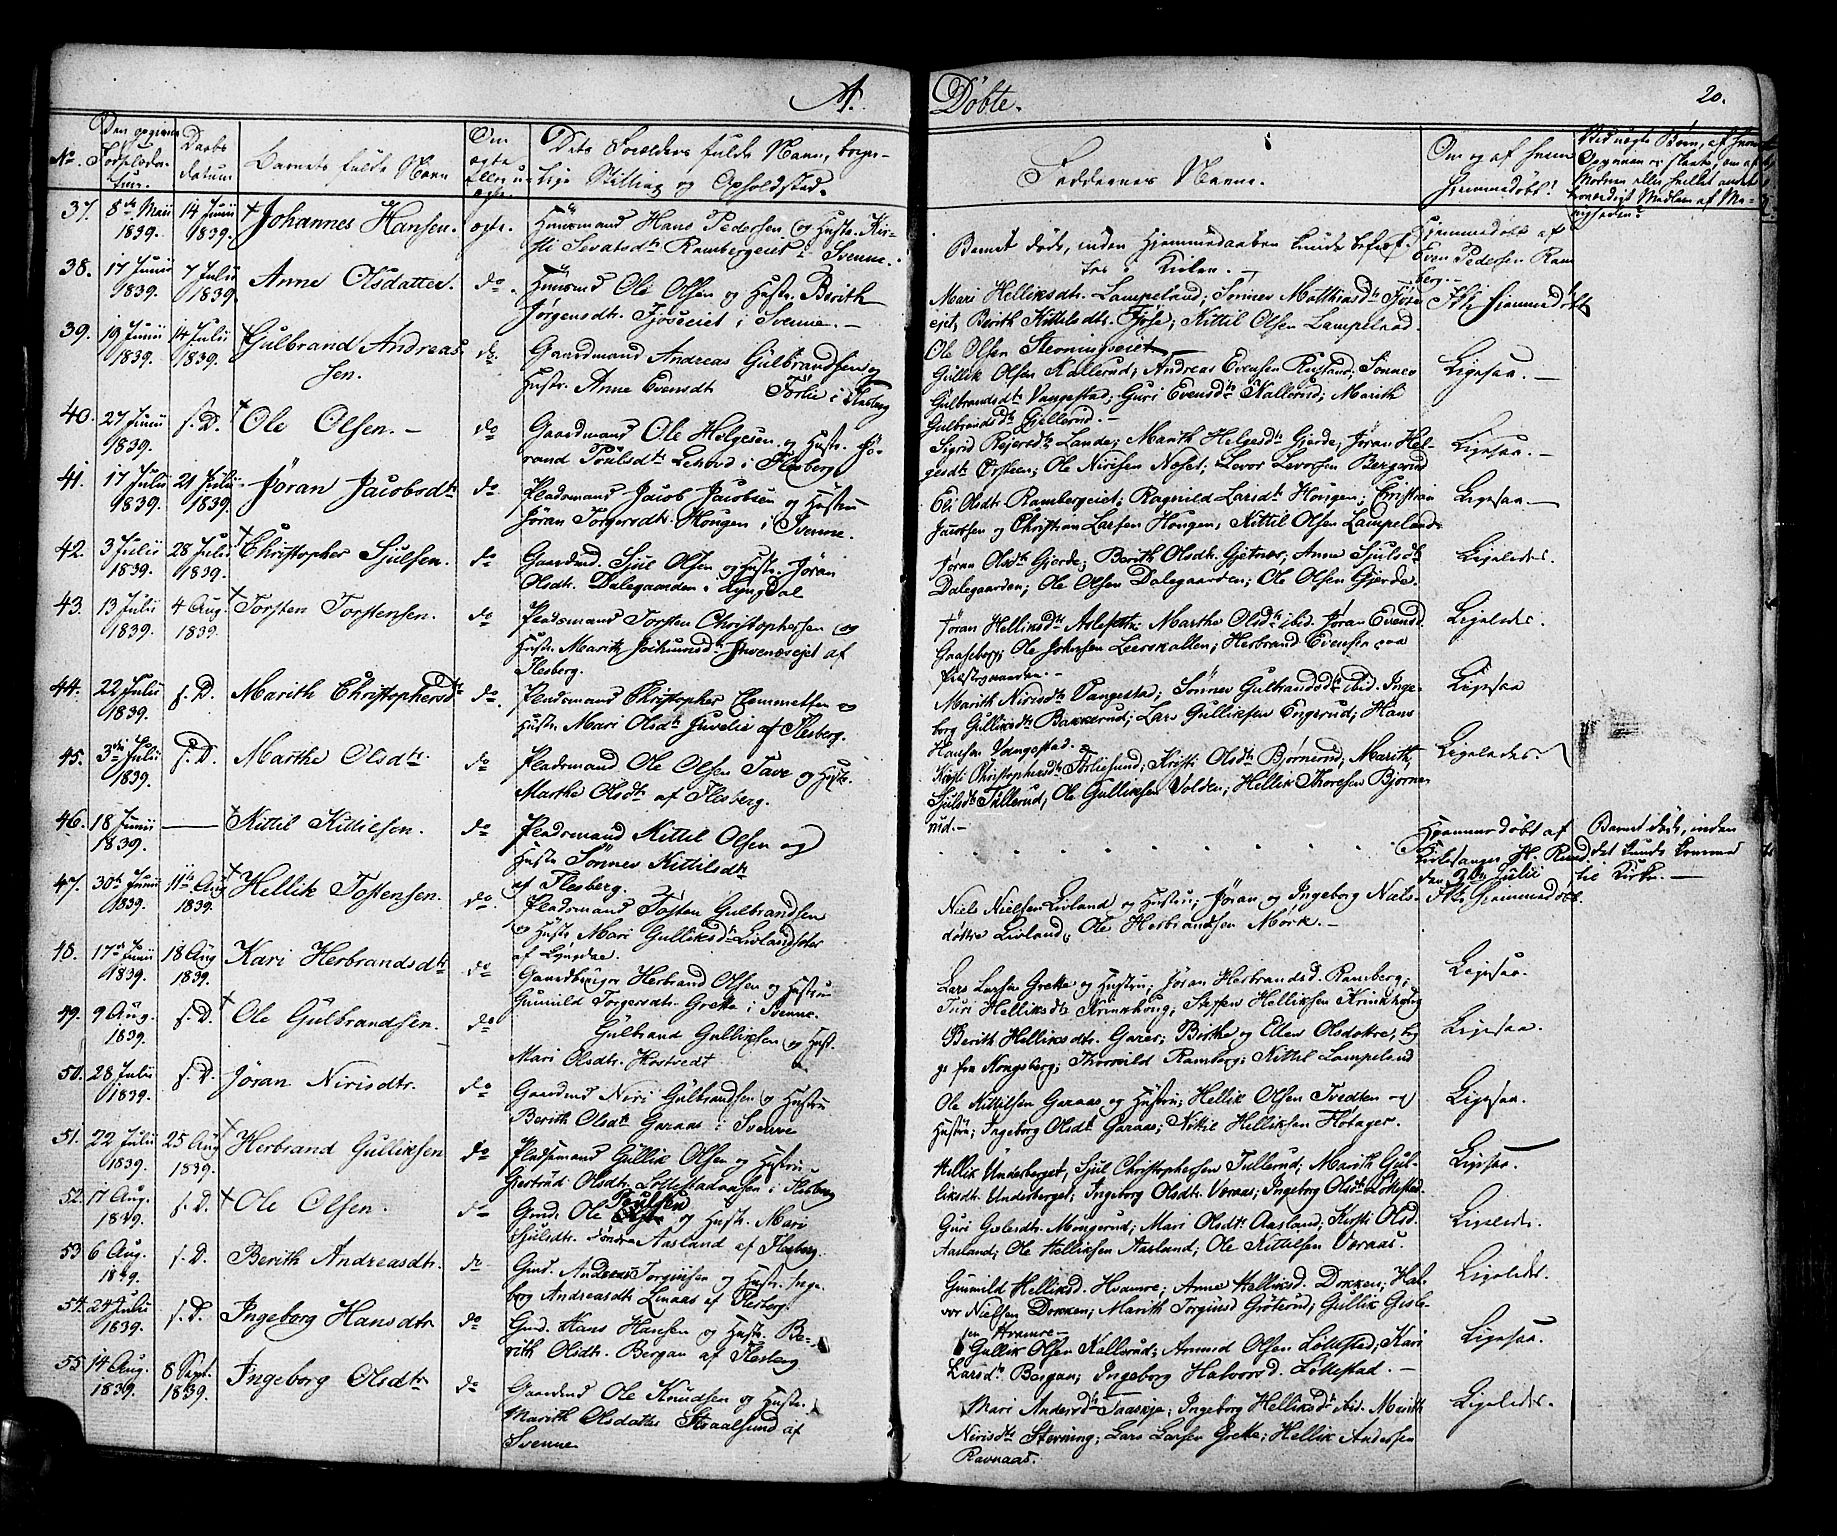 A. Døbte. 20.
No. Den opgivne Fødselsdatum. Daabs datum Barnets fulde Navn Om ægte eller uægte. Dets Forældres fulde Navn, borgerlige Stilling og Opholdsted. Faddernes Navne. Om og af hvem hjemmedøbt!
37. 8de Maii 1839. 14 Junii 1839. † Johannes Hansen. ægte. Huusmand Hans Pedersen og Hustr. Kir-
sti Sevatsdtr Rambergeiet i Svenne. Barnet døde, inden Hjemmedaaben kunde befæst-
es i Kirken. — Hjemmedøbt af Even Pedersen Ramberg. —
38. 17 Junii 1839. 7 Julii 1839. Anne Olsdatter. do. Huusmd Ole Olsen og Hustr. Berith
Jørgensdtr. Fjøseiet i Svenne. — Mari Helliksdtr. Lampeland; Sønnev Matthiasdtr Fjøs-
ejet, Berith Kittilsdtr. Fjøse; Kittil Olsen Lampeland.
Ole Olsen Sterningseiet — Ikke Hjemmedøbt
39. 19 Junii 1839. 14 Julii 1839. † Gulbrand Andreas-
sen. do. Gaardmand Andreas Gulbrandsen og
Hustr. Anne Evensdt Førlie i Flesberg Gullik Olsen Kallerud; Andreas Evensen Ruslund; Sønnev
Gulbrandsdtr Vangestad; Guri Evensdtr Kallerud; Marith
Gulbrandsdtr Gjellerud. — Ligesaa. —
40. 27 Junii 1839. s. D. † Ole Olsen. — do Gaardmand Ole Helgesen og Hustr. Jø-
rand Poulsdtr Lehovd i Flesberg Sigrid Rejersdtr Lande; Marith Helgesdtr Gjerde; Jøran Hel-
gesdtr Ørsteen; Ole Nirisen Næset; Levor Levorsen Bergerud Ligesaa. —
41. 17 Julii 1839. 21 Julii 1839. Jøran Jacobsdtr do Pladsmand Jacob Jacobsen og Hustru
Jøran Torgersdtr. Hougen i Svenne. Eli Olsdtr Rambergeiet; Ragnild Larsdtr Hougen; Christian
Jacobsen og Christian Larsen Hougen; Kittil Olsen Lampeland. Ligesaa —
42. 3 Julii 1839. 28 Julii 1839. † Christopher Sjulsen. do Gaardmd. Sjul Olsen og Hustr. Jøran
Olsdt. Dalegaarden i Lyngdal Jøran Olsdtr Gjerde; Berith Olsdtr. Gjetnæs; Anne Sjulsdtr
Dalegaarden; Ole Olsen Dalegaarden; Ole Olsen Gjerde. Ligeledes.
43. 13 Julii 1839. 4 Aug. 1839. † Torsten Torstensen. do Pladsmand Torsten Christophersen og
Hustr. Marith Jwenseiet af
Flesberg. Jøran Helliksdtr Marthe Olsdtr ibid. Jøran Evensd.
Gaaseberg; Ole Johnsen Leerskallen; Herbrand Evensen paa
Præstegaarden. — Ligeledes.
44. 22 Julii 1839. s. D. Marith Christophersdtr do. Pladsmand Christopher Clemmetsen og
Hustr. Mari Olsdtr Juvelie af Flesberg. Marith Nirisdtr Vangestad; Sønnev Gulbrandsdtr ibid. Inge-
borg Gulliksdtr Bakkerud; Lars Gulliksen Engerud; Hans
Hansen Vangestad. Ligesaa
45. 3die Julii 1839. s. D. Marthe Olsdtr. do Pladsmand Ole Olsen Tave og Hustr.
Marthe Olsdtr af Flesberg. Kirsti Christophersdtr Førliesund; Kristi Olsdtr Bjørnerud; Marith
Sjulsdtr Tullerud; Ole Gulliksen Volden; Hellik Thoresen Bjørne-
rud. — Ligeledes.
46. 18 Junii 1839. — † Kittil Kittilsen. do Pladsmand Kittil Olsen og
Hustr Sønnev Kittilsdtr
af Flesberg. Hjemmedøbt af
Kirkesanger H. Ruud
den 20 Julii Barnet døde, inden
det kunde komme
til Kirke. —
47. 30te Junii 1839. 11te Aug 1839. † Hellik Tostensen. do. Pladsmand Tosten Gulbrandsen
og Hustr. Mari Gulliksdtr Livlandseter
af Lyngdae. Niels Nielsen Livland og Hustru; Jøran og Ingeborg Niels-
døttre Livland; Ole Herbrandsen Mørk. — Ikke Hjemmedøbt
48. 17de Junii 1839. 18 Aug 1839. Kari Herbrandsdtr do Gaardbruger Herbrand Olsen og Hustru
Gunnild Torgersdtr. Grette i Svenne. Lars Larsen Grette og Hustru; Jøran Herbrandsd. Ramberg;
Turi Helliksdtr Steffen Helliksen Ligesaa.
49. 9 Aug. 1839. s. D. † Ole Gulbrandsen. do Gulbrand Gulliksen og Hust.
Mari Olsdtr. Hostvedt Berith Helliksdtr. Birthe og Ellen Olsdøttre,
fra Kongsberg; Thorvild Ramberg; Kittil Lampeland Ligesaa.
50. 28 Julii 1839. s. D. Jøran Nirisdtr. do Gaardmd Niri Gulbrandsen og Hustru
Berith Olsdtr Garaas i Svenne Ole Kittilsen Garaas og Hustru; Hellik Olsen Tvedten og
Hustru; Ingeborg Olsdtr Garaas; Kittil Helliksen Fløtager. Ligesaa.
51. 22 Julii 1839. 25 Aug 1839. † Herbrand Gulliksen do Pladsemand Gullik Olsen og Hustru
Gertrud Olsdtr i Flesberg Hellik Underberget, Sjul Christophersen Tullerud; Marith Gul-
liksdtr Underberget; Ingeborg Olsdtr Voraas; Ingeborg Olsdtr Løttestad. Ligesaa.
52. 17 Aug. 1839. s. D. † Ole Olsen. do Gmd. Ole Poulsen og Hustr. Mari
Sjulsdtr. Søndre Aasland af Flesberg. Guri Gislesdtr. Mongerud; Mari Olsdtr Aasland; Kirsti Olsd.
Aasland; Ole Helliksen Aasland; Ole Kittilsen Voraas. Ligeleds.
53. 6 Aug. 1839. s. D. Berith Andreasdtr. do Gmd. Andreas Torgiusen og Hustr. Inge-
borg Andreasdtr Linaas af Flesberg. Gunnild Helliksd. Hvamre; Anne Helliksd. Dokken; Hal-
vor Nielsen Dokken; Marith Torgiusd Grøterud; Gullik Gisle-
sen Hvamre — Ligeledes.
54. 24 Julii 1839. s. D. Ingeborg Hansdtr do Gmd. Hans Hansen og Hustr. Be-
rith Olsdtr. Bergan af Flesberg Gullik Olsen Kallerud; Amund Olsen Løttestad; Kari
Larsdtr Bergan; Ingeborg Halvorsd. Løttestad. — Ligesaa.
55. 14 Aug. 1839. 8 Sept. 1839. Ingeborg Olsdtr do Gaardmd Ole Knudsen og Hustr.
Marith Olsdatter Straalsund af
Svenne Mari Andersdtr Taaskje; Ingeborg Helliksdtr ibid. Marith
Nirisdtr Sterning; Lars Larsen Grette; Hellik Andersen
Ravnaas. Ligeledes.